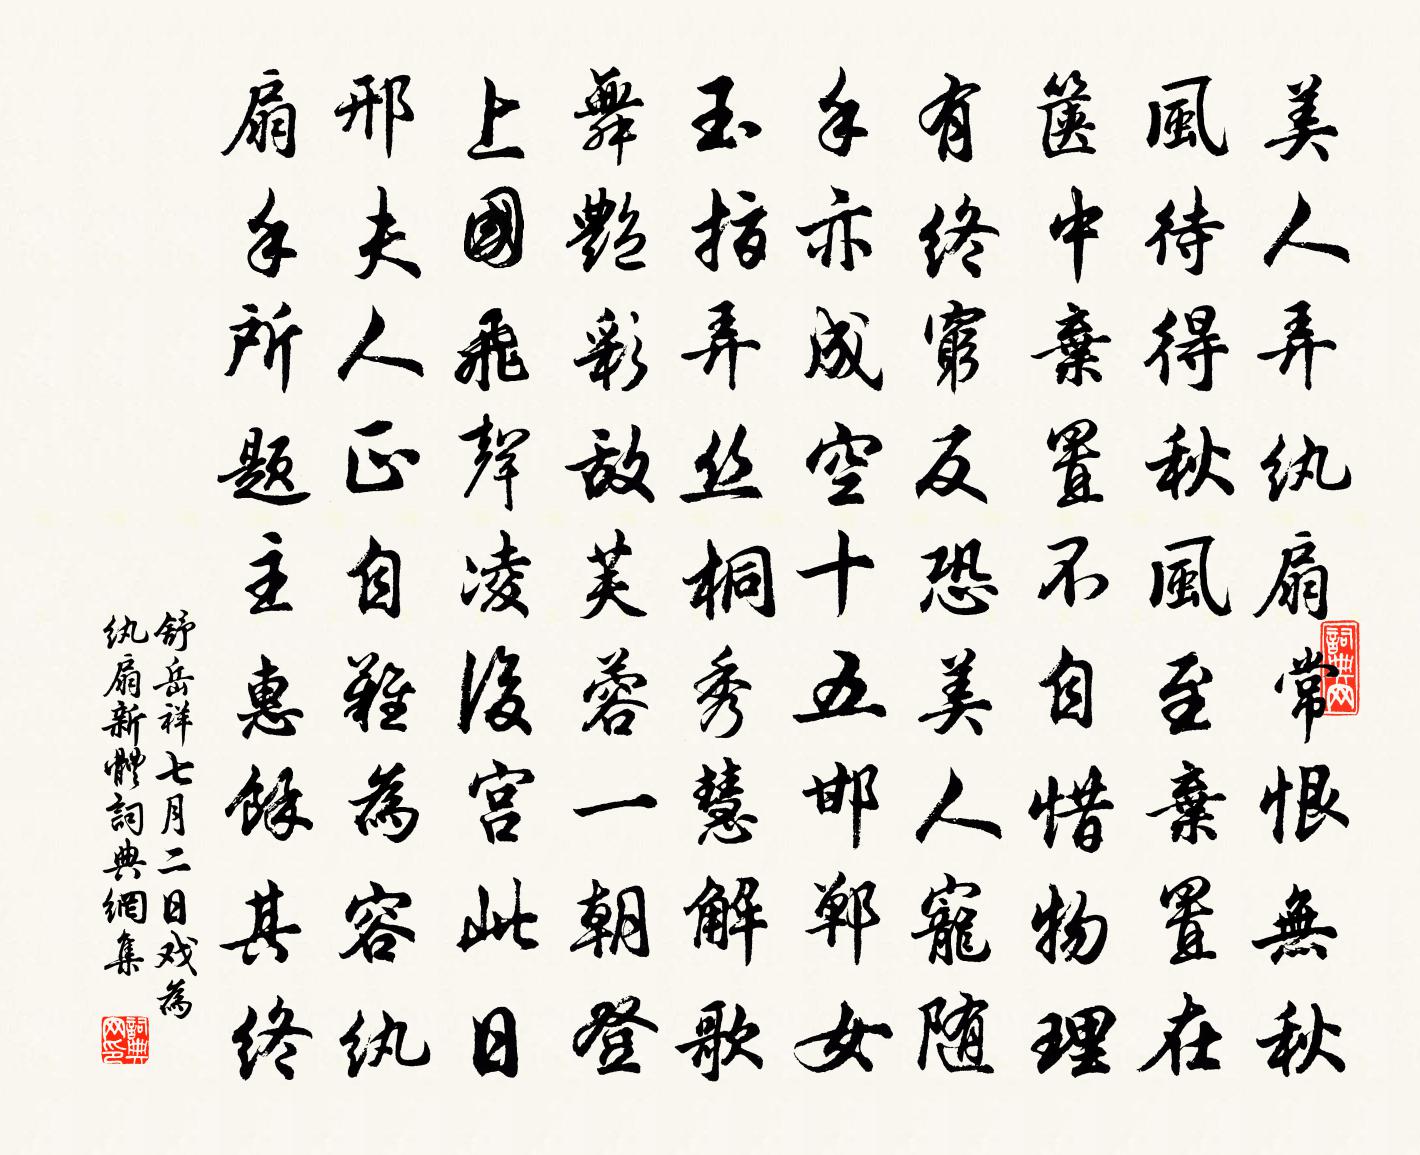 美人弄纨扇常恨無秋
風待得秋風至棄置在
篋中棄置不自惜物理
有终窮反恐美人寵随
手亦成空十五邯鄲女
玉指弄丝桐秀慧解歌
舞艷彩敌芙蓉一朝登
上國飛聲凌後宫此日
邢夫人正自難為容纨
扇手所题主惠餘其终
舒岳祥七月二日戏為
纨扇新體詞典網集
詞典网
詞典网印